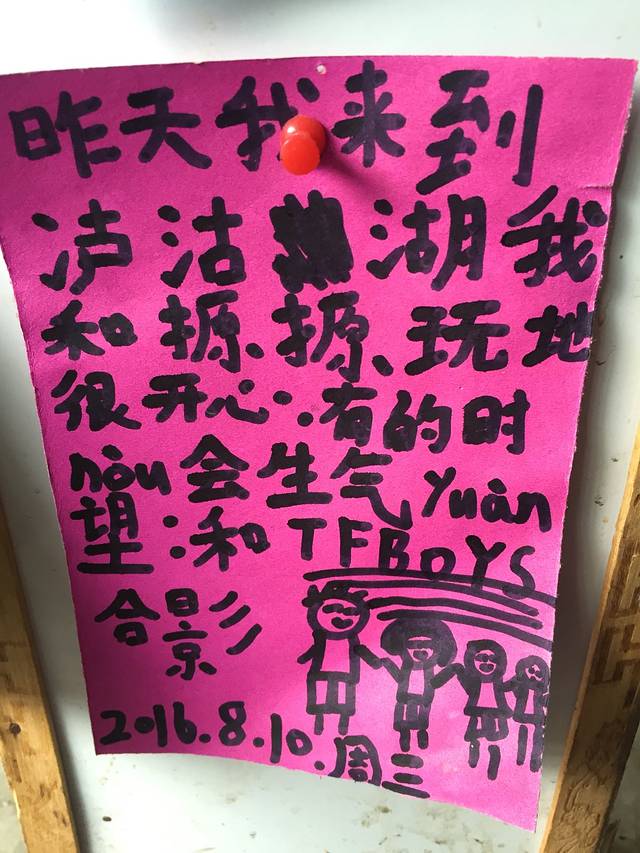 昨天我来到
泸沽湖我
和玩地
很开心∵有的时
nòu会生气Yuàn
望:和TFBOYS
合影
2016.8.10.周三